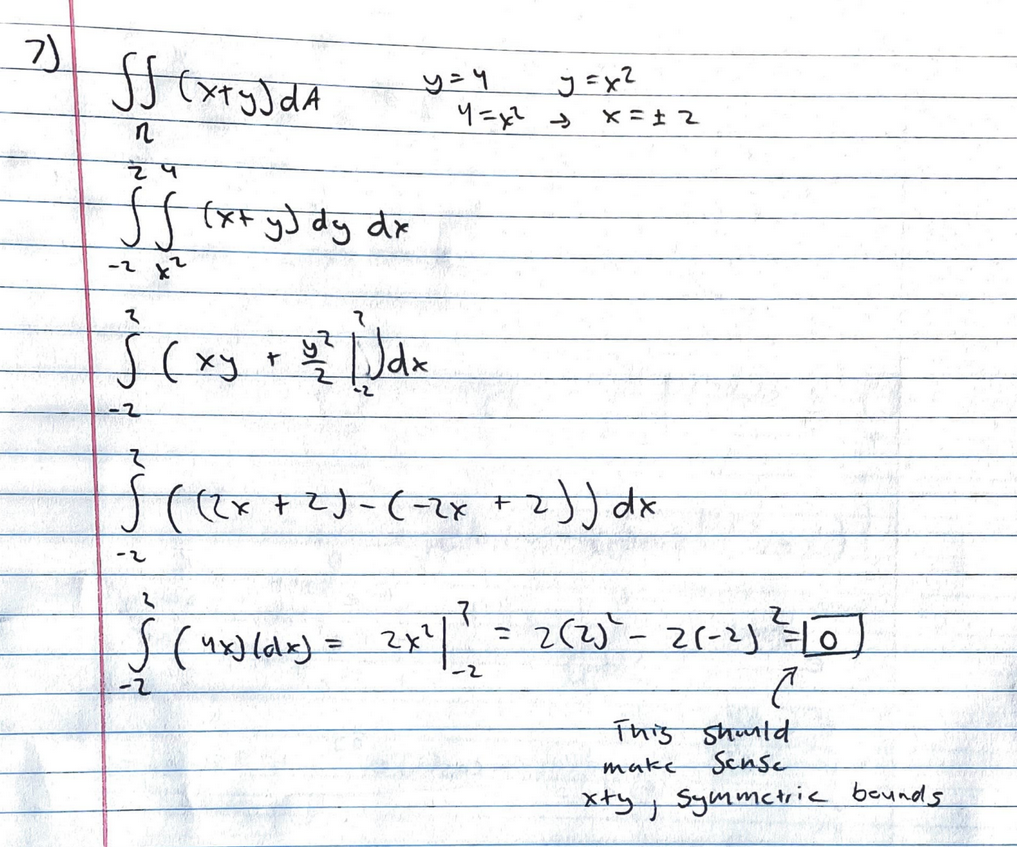 7) ∬ (x+y)dA y=4 y=x²
R 4=x² → x=±2
∫₋₂² ∫ₓ₂⁴ (x+y) dy dx
∫₋₂² (xy + y²/2 |₋₂²) dx
∫₋₂² ((2x + 2) - (-2x + 2)) dx
∫₋₂² (4x)(dx) = 2x² |₋₂² = 2(2)² - 2(-2)² = 0
This should
make sense
x+y, symmetric bounds